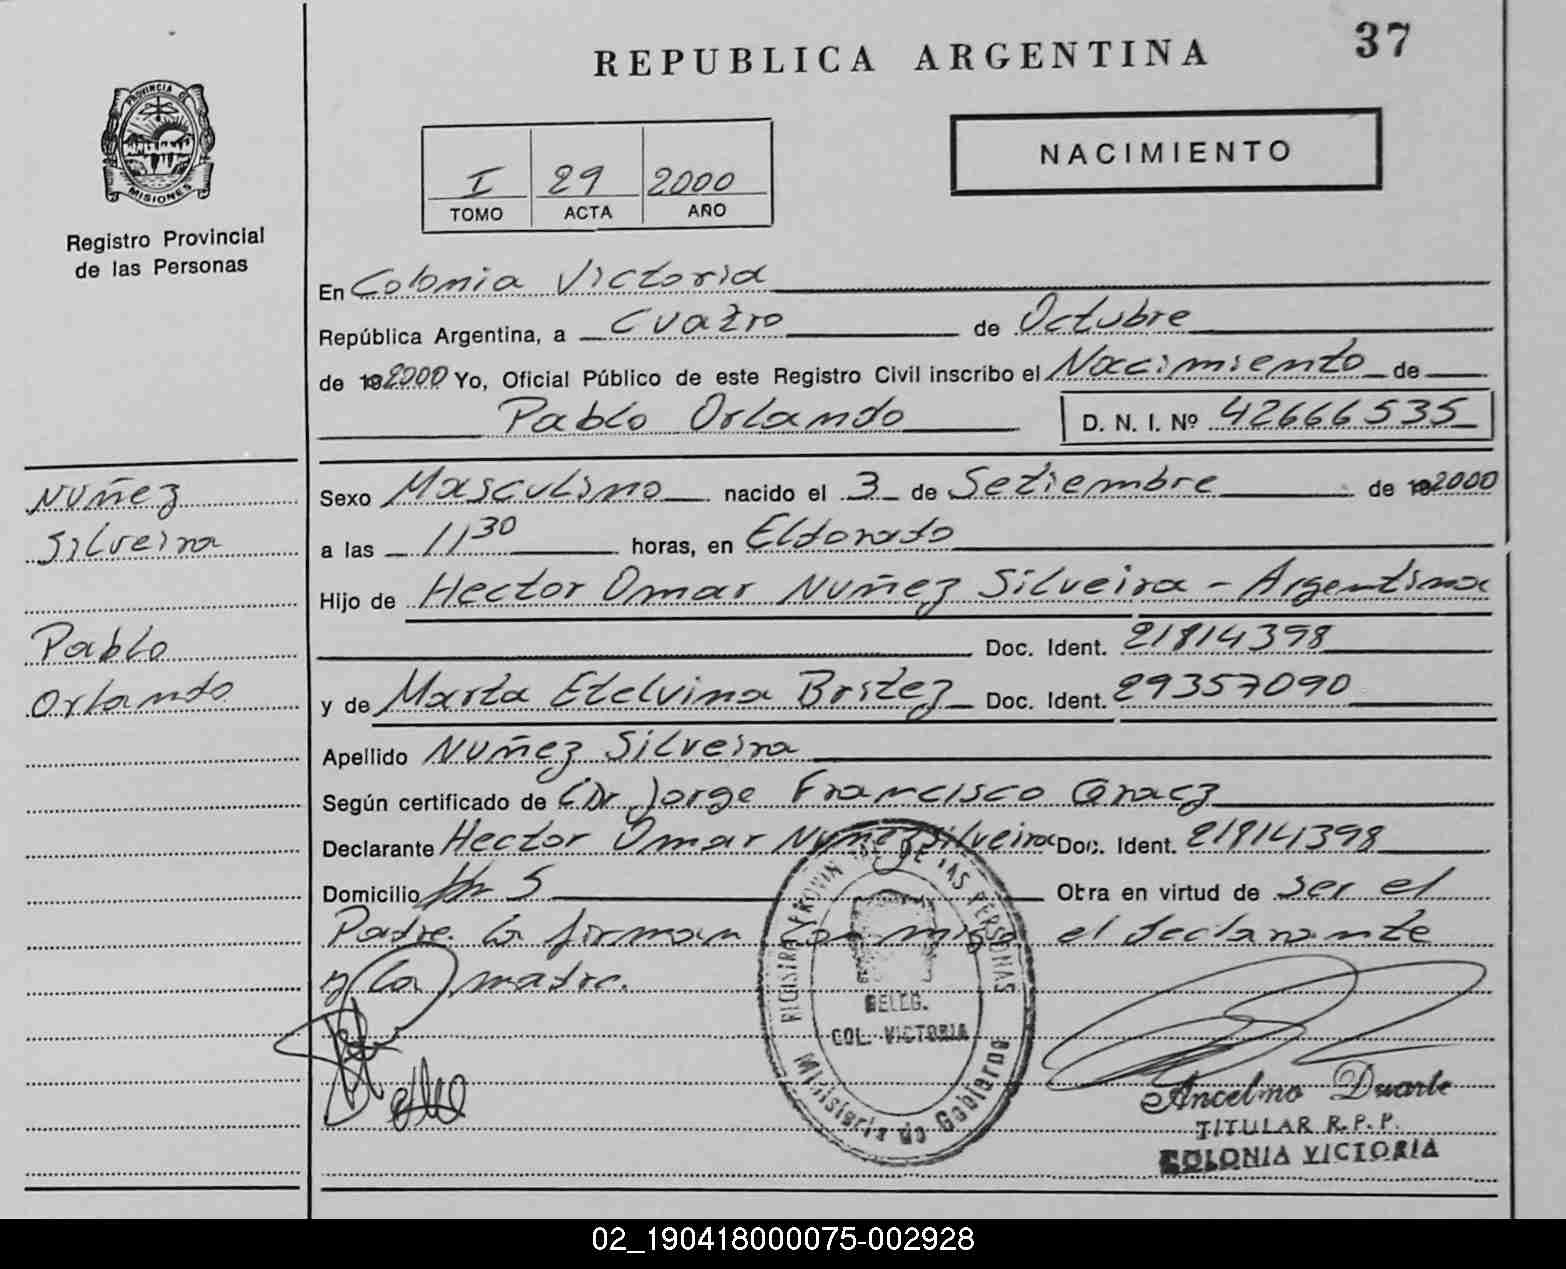 37
REPUBLICA ARGENTINA
NACIMIENTO
PROVINCIA DE
MISIONES
Registro Provincial
de las Personas
I 29 2000
TOMO ACTA AÑO
En Colonia Victoria
República Argentina, a Cuatro de Octubre
de 192000 Yo, Oficial Público de este Registro Civil inscribo el Nacimiento de
Pablo Orlando D. N. I. Nº 42666535
Nuñez
Silveira
Pablo
Orlando
Sexo Masculino nacido el 3 de Setiembre de 192000
a las 11 30 horas, en Eldorado
Hijo de Hector Omar Nuñez Silveira - Argentina
Doc. Ident. 21814398
y de Marta Etelvina Britez Doc. Ident. 29357090
Apellido Nuñez Silveira
Según certificado de Dr Jorge Francisco
Declarante Hector Omar Nuñez Silveira Doc. Ident. 21814398
Domicilio Km 5 Obra en virtud de ser el
Padre. La firman conmigo el declarante
y la madre.
REGISTRO PROVINCIAL DE LAS PERSONAS
DELEG.
COL. VICTORIA
Ministerio de Gobierno
Ancelmo Duarte
TITULAR R.P.P.
COLONIA VICTORIA
02_190418000075-002928